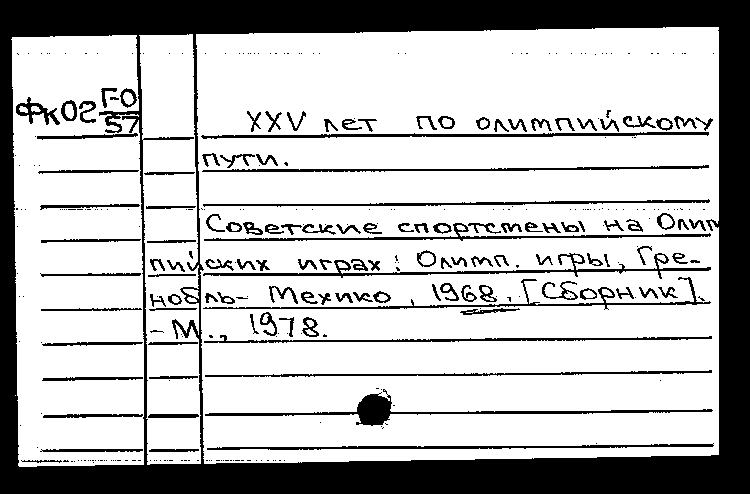 ФК02 Г-0
57
XXV лет по олимпийскому
пути.
Советские спортсмены на Олим
пийских играх: Олимп. игры, Гре-
нобль- Мехико, 1968. [Сборник].
-М., 1978.